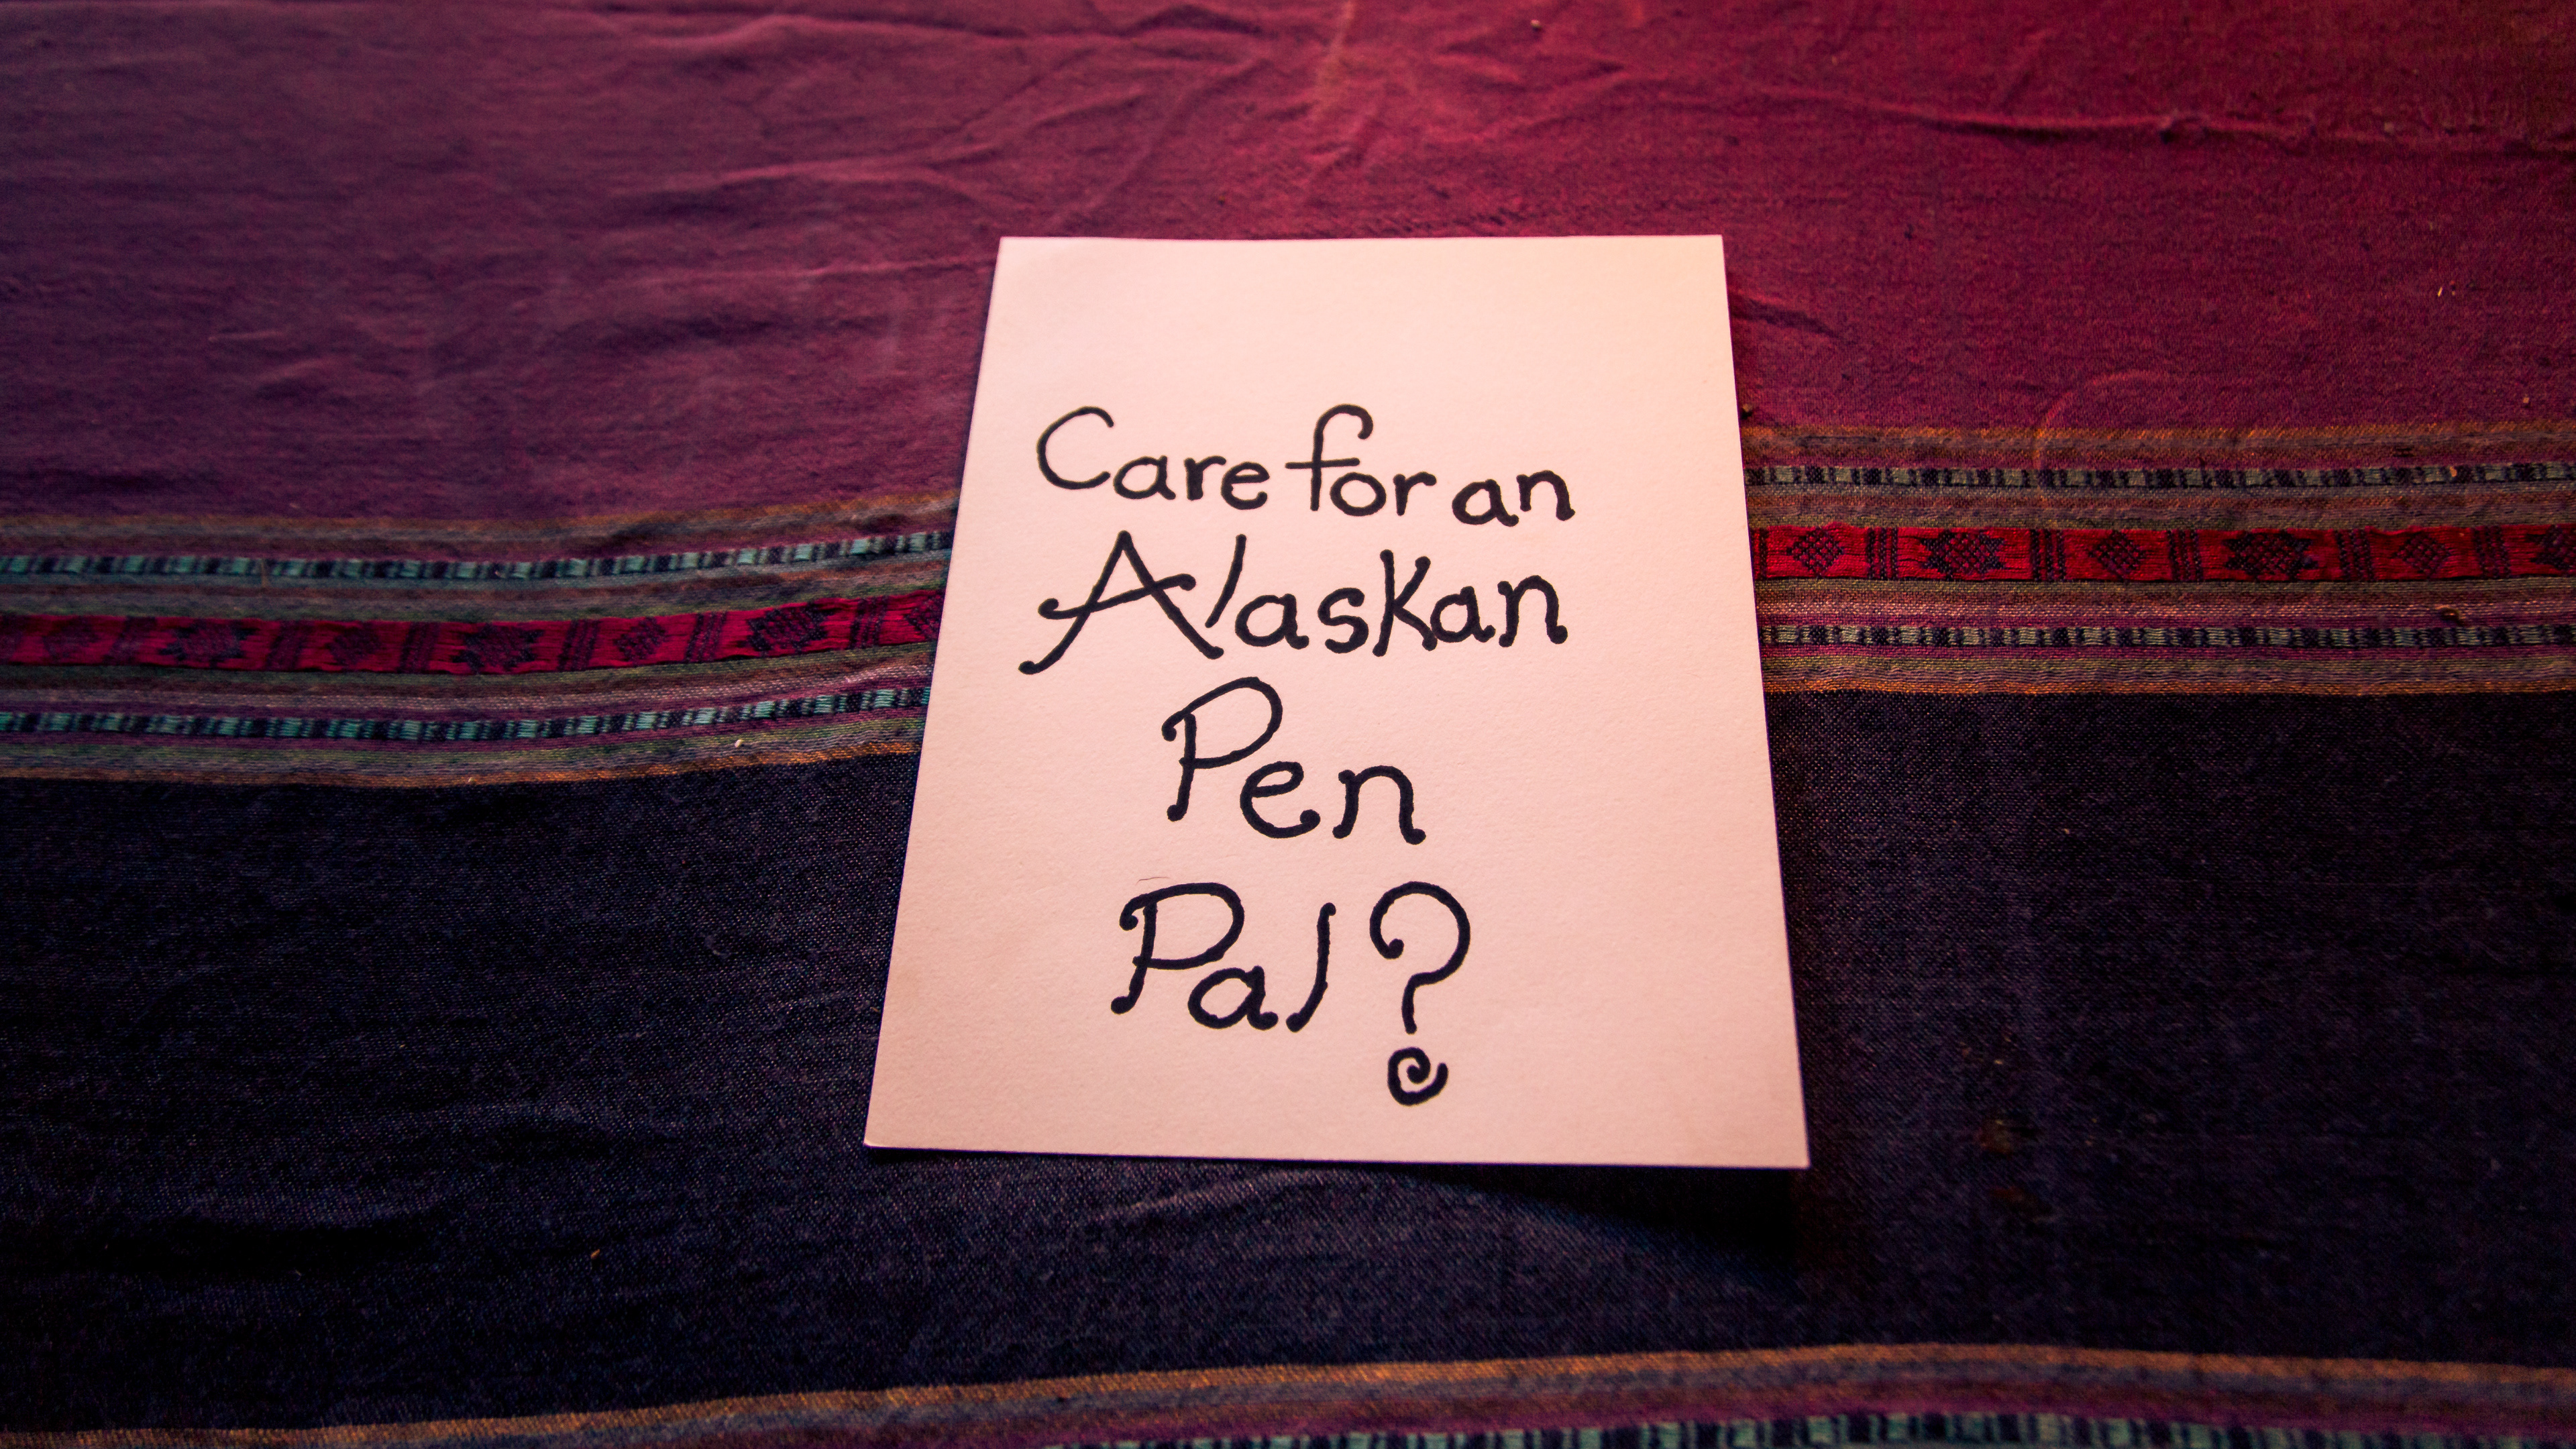 Care for an
Alaskan
Pen
Pal?